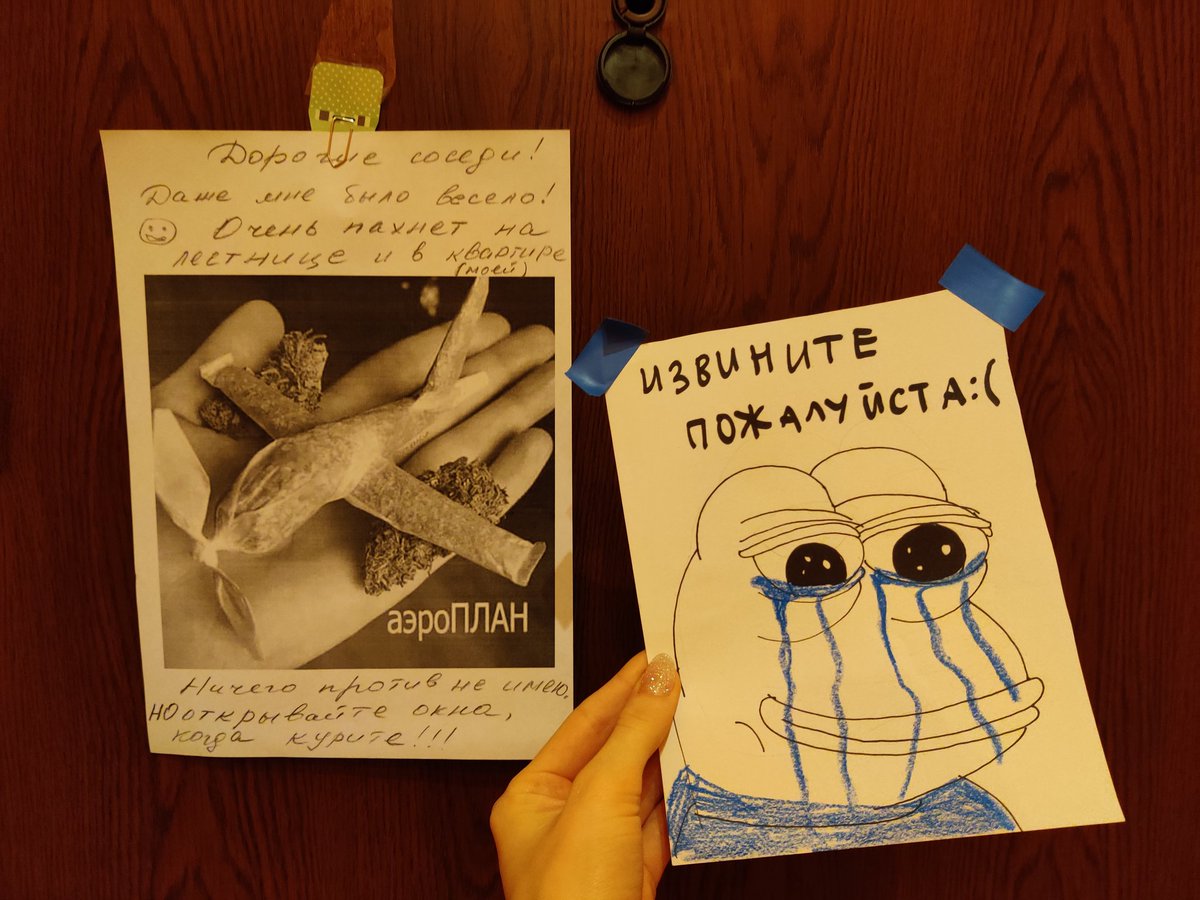 Дорогие соседи!
Даже мне было весело!
Очень пахнет на
лестнице и в квартире
(моей)
аэроПЛАН
Ничего против не имею,
НО открывайте окна,
когда курите!!!
ИЗВИНИТЕ
ПОЖАЛУЙСТА:(